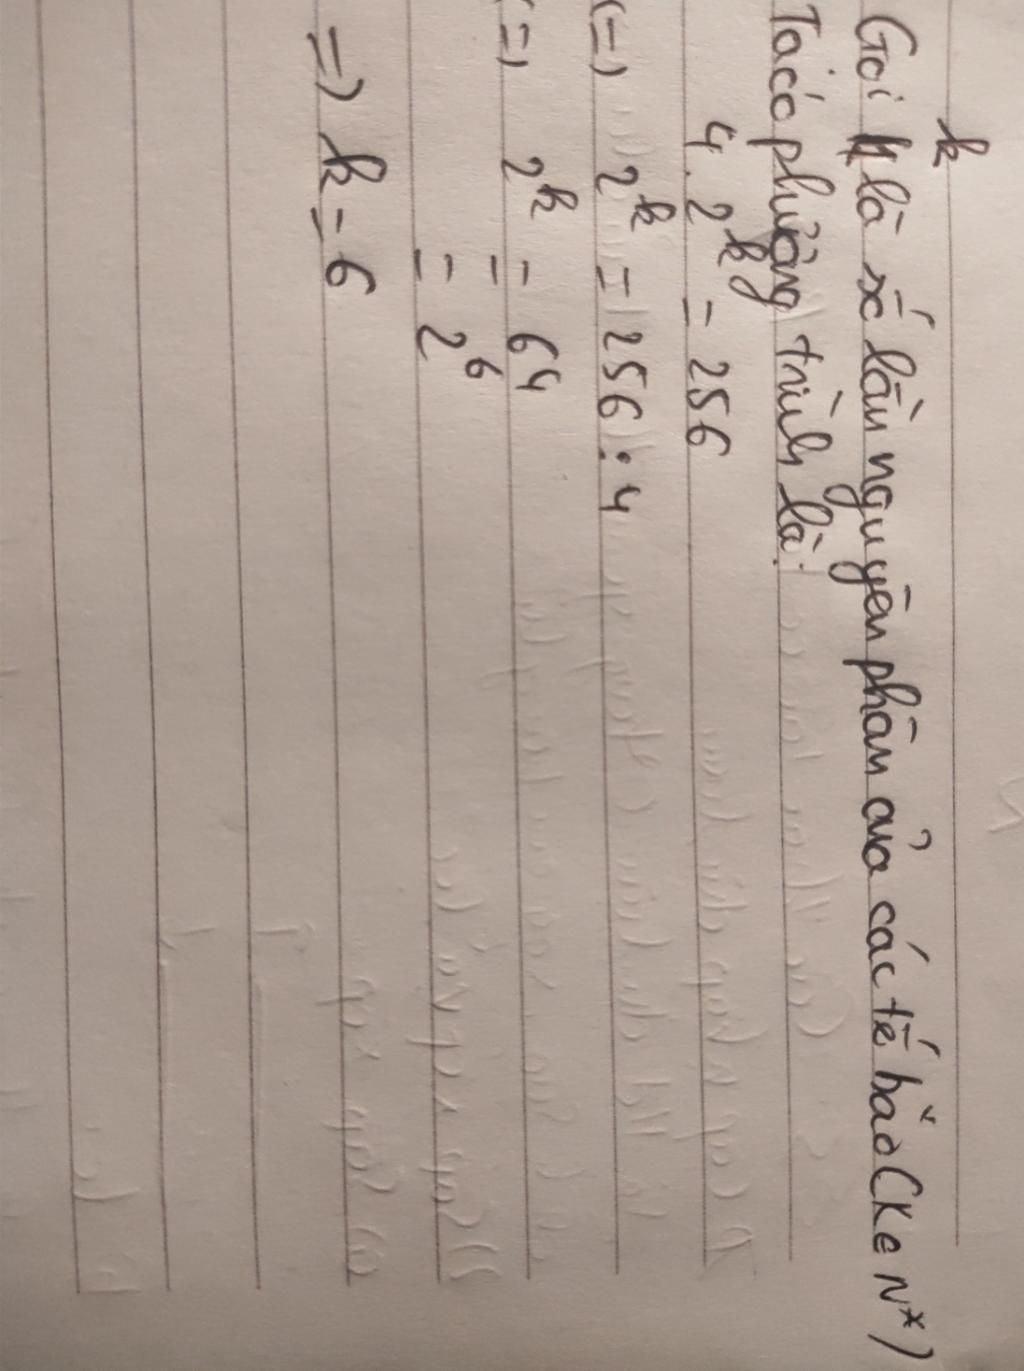 k
Gọi là số lần nguyên phân của các tế bào (K ∈ N*)
Ta có phương trình là:
4. 2^k = 256
(=) 2^k = 256 : 4
(=) 2^k = 64
= 2^6
=) k = 6